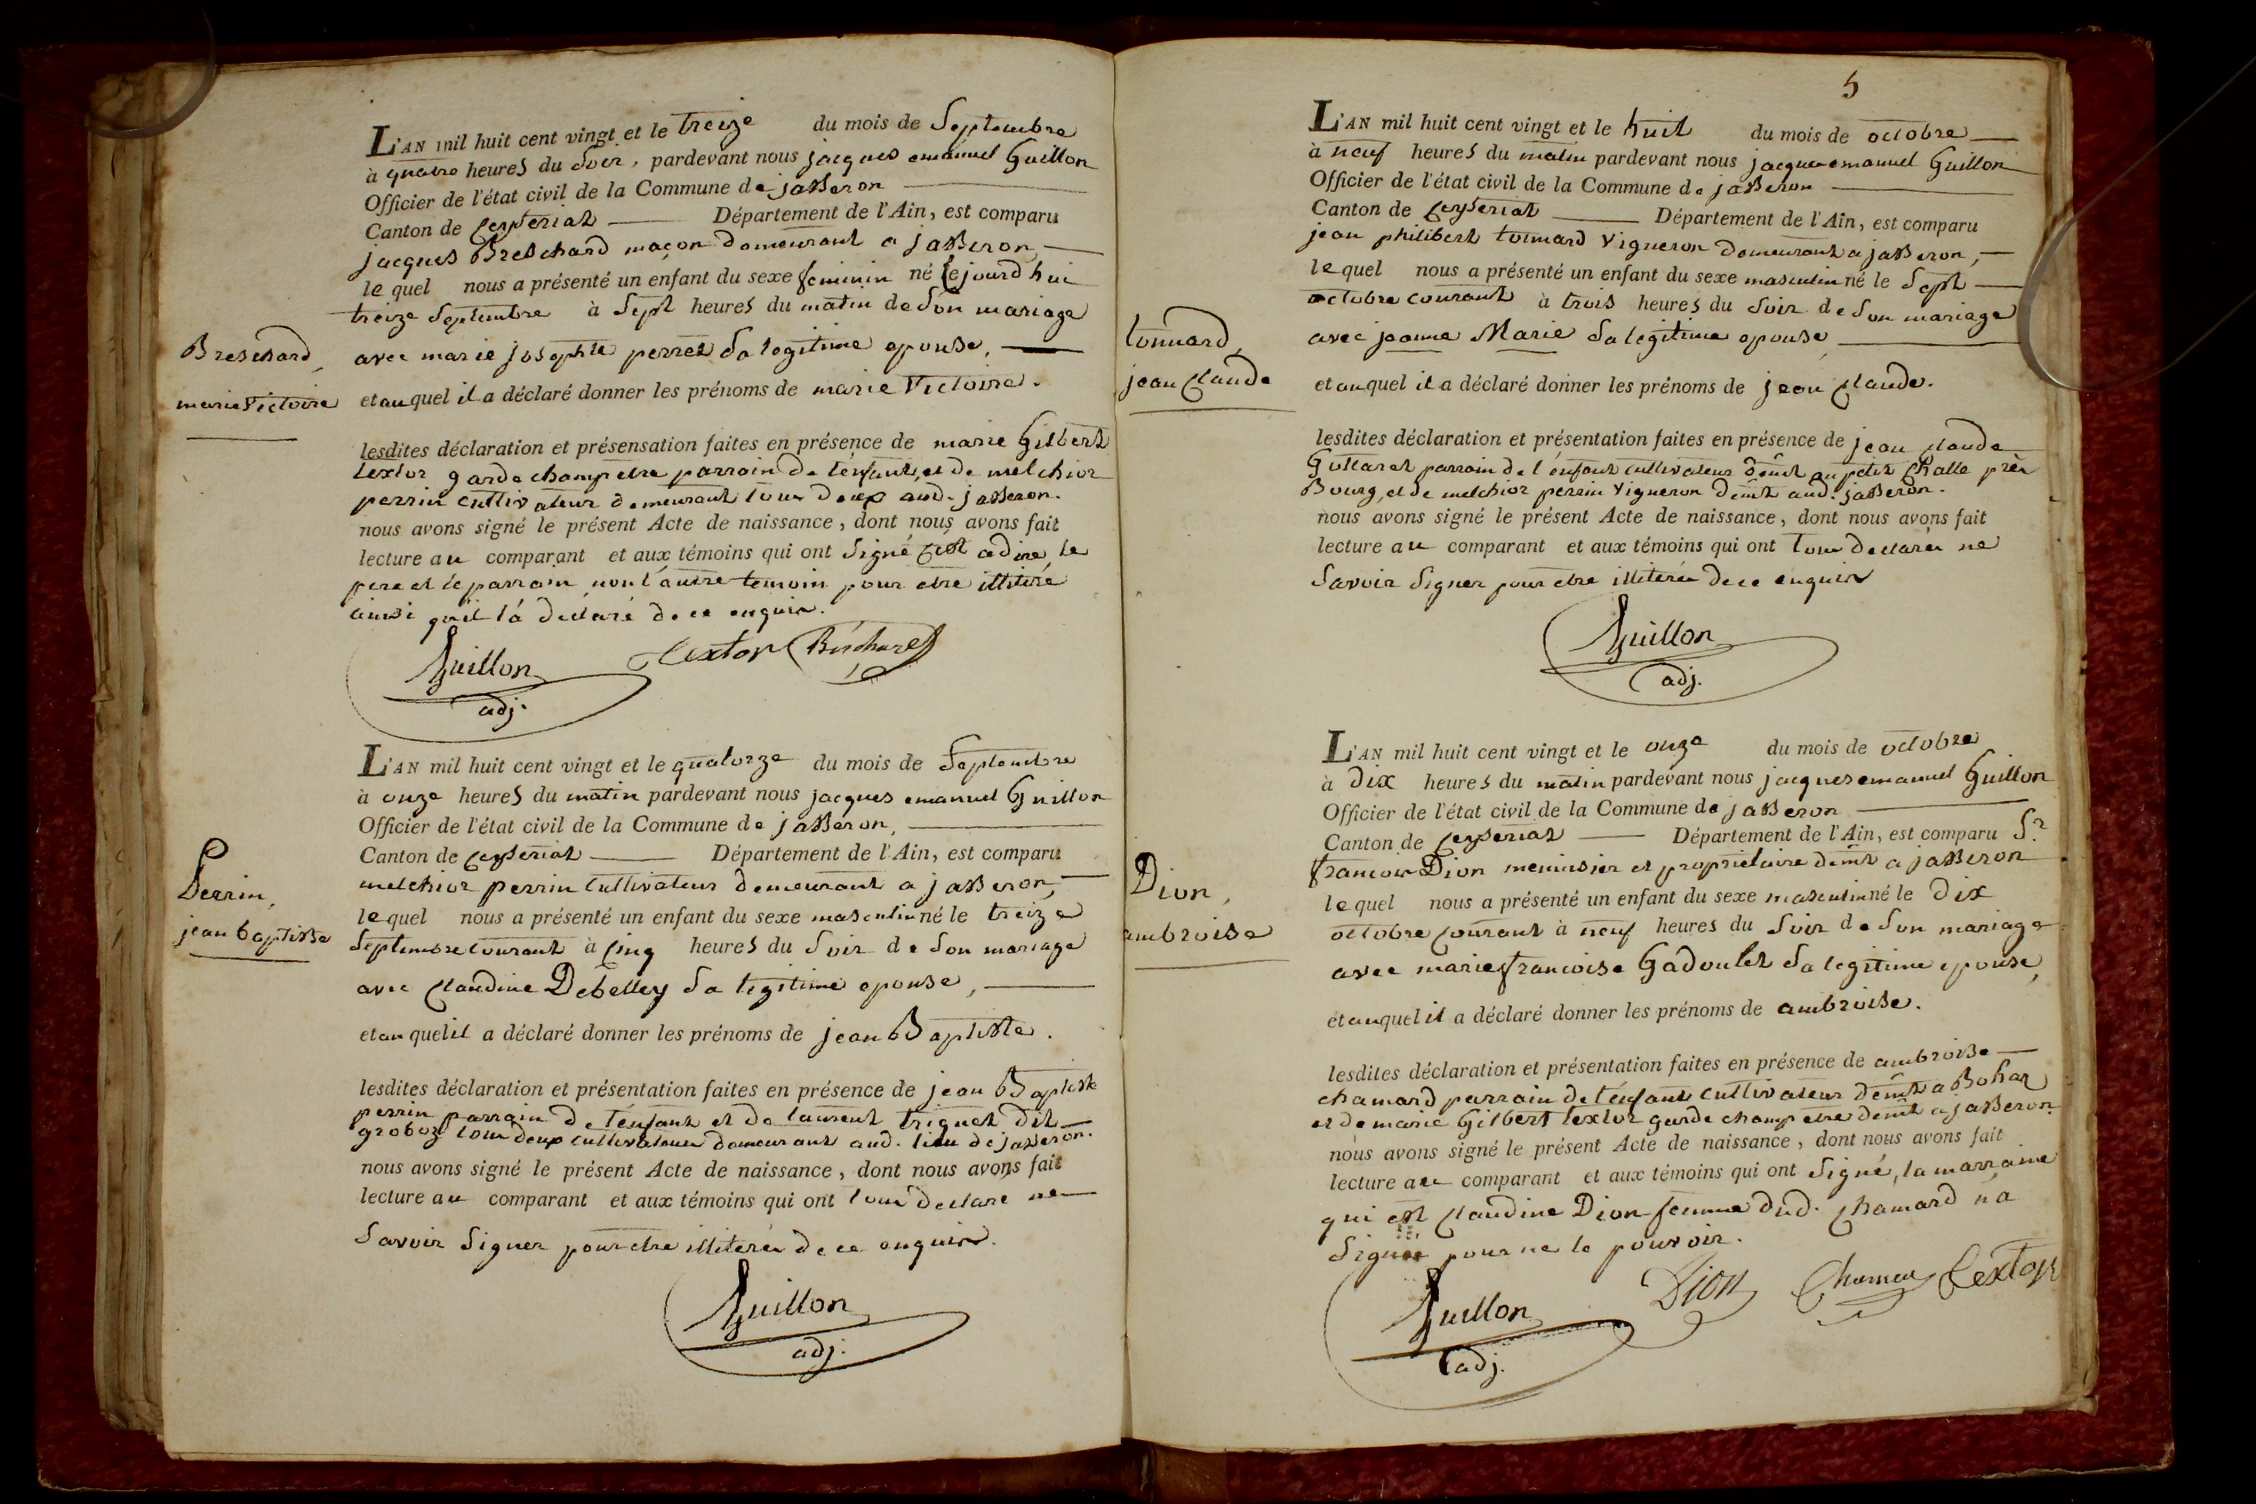 L'AN mil huit cent vingt et le treize du mois de Septembre
à quatre heures du Soir, pardevant nous jacques emanuel Guillon
Officier de l'état civil de la Commune de jasseron
Canton de Ceyseriat Département de l'Ain, est comparu
jacques Breschard maçon demeurant a jasseron,
lequel nous a présenté un enfant du sexe feminin né Cejourdhui
treize Septembre à Sept heures du matin de Son mariage
Breschard, avec marie josephte perret Sa legitime epouse,
marie Victoire et auquel il a déclaré donner les prénoms de marie Victoire.
lesdites déclaration et présensation faites en présence de marie Gilbert
textor garde champetre parrain de l'enfant, et de melchior
perrin cultivateur demeurant tous deux aud. jasseron.
nous avons signé le présent Acte de naissance, dont nous avons fait
lecture au comparant et aux témoins qui ont Signé Cest adire le
pere et le parrain non l'autre temoin pour etre illitiré
ainsi qu'il l'a déclaré de ce enquis.
Guillon textor Brechard
adj.
L'AN mil huit cent vingt et le quatorze du mois de Septembre
à onze heures du matin pardevant nous jacques emanuel Guillon
Officier de l'état civil de la Commune de jasseron,
Canton de Ceyseriat Département de l'Ain, est comparu
melchior perrin Cultivateur demeurant a jasseron,
Perrin, lequel nous a présenté un enfant du sexe masculin né le treize
jean baptiste Septembre Courant à Cinq heures du Soir de Son mariage
avec Claudine Debelley Sa legitime epouse,
et auquel il a déclaré donner les prénoms de jean Baptiste.
lesdites déclaration et présentation faites en présence de jean Baptiste
perrin parrain de l'enfant et de laurent triquet dit
groboz tous deux cultivateurs demeurant aud. lieu de jasseron.
nous avons signé le présent Acte de naissance, dont nous avons fait
lecture au comparant et aux témoins qui ont tous declaré ne
Savoir Signer pour etre illiterés de ce enquis.
Guillon
adj.
5
L'AN mil huit cent vingt et le huit du mois de octobre
à neuf heures du matin pardevant nous jacque emanuel Guillon
Officier de l'état civil de la Commune de jasseron
Canton de Ceyseriat Département de l'Ain, est comparu
jean philibert tonnard Vigneron demeurant a jasseron,
lequel nous a présenté un enfant du sexe masculin né le Sept
octobre courant à trois heures du Soir de Son mariage
tonnard, avec jeanne Marie Sa legitime epouse,
jean Claude et auquel il a déclaré donner les prénoms de jean Claude.
lesdites déclaration et présentation faites en présence de jean claude
parrain de l'enfant cultivateur demt au petit Challe près
Bourg, et de melchior perrin Vigneron demt aud. jasseron.
nous avons signé le présent Acte de naissance, dont nous avons fait
lecture au comparant et aux témoins qui ont tous declarés ne
Savoir Signer pour etre illiterés de ce enquis
Guillon
adj.
L'AN mil huit cent vingt et le onze du mois de octobre
à dix heures du matin pardevant nous jacques emanuel Guillon
Officier de l'état civil de la Commune de jasseron
Canton de Ceyseriat Département de l'Ain, est comparu Sr
Dion, francois Dion menuisier et proprietaire demt a jasseron
lequel nous a présenté un enfant du sexe masculin né le Dix
ambroise octobre Courant à neuf heures du Soir de Son mariage
avec marie francoise Gadoulet Sa legitime epouse,
et auquel il a déclaré donner les prénoms de ambroise.
lesdites déclaration et présentation faites en présence de ambroise
chamard parrain de l'enfant cultivateur demt a Bohas
et de marie Gilbert textor garde champetre demt a jasseron.
nous avons signé le présent Acte de naissance, dont nous avons fait
lecture au comparant et aux témoins qui ont Signé, la marraine
qui est Claudine Dion femme dud. Chamard n'a
Signer pour ne le pouvoir.
Guillon Dion Chamard textor
adj.